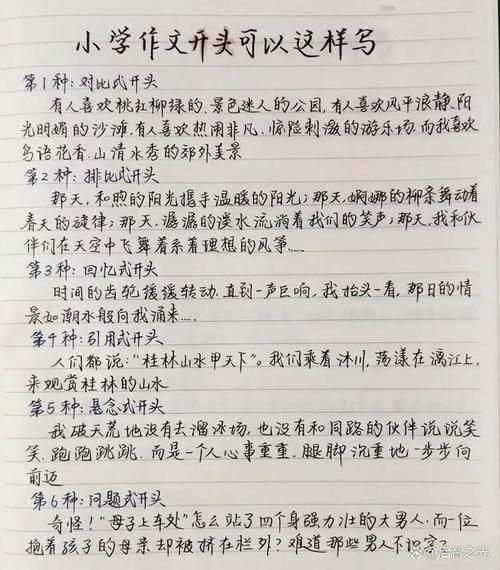 小学作文开头可以这样写
第1种:对比式开头
有人喜欢桃红柳绿的、景色迷人的公园,有人喜欢风平浪静、阳
光明媚的沙滩,有人喜欢热闹非凡、惊险刺激的游乐场,而我喜欢
鸟语花香、山清水秀的郊外美景
第2种:排比式开头
那天,和煦的阳光携手温暖的阳光;那天,婀娜的柳条舞动着
春天的旋律;那天,潺潺的溪水流淌着我们的笑声;那天,我和伙
伴们在天空中飞舞着系着理想的风筝……
第3种:回忆式开头
时间的齿轮缓缓转动,直到一声巨响,我抬头一看,那日的情
景如潮水般向我涌来……
第4种:引用式开头
人们都说:"桂林山水甲天下"。我们乘着沐川,荡漾在漓江上,
来观赏桂林的山水
第5种:悬念式开头
我破天荒地没有去溜冰场,也没有和同路的伙伴说说笑
笑、跑跑跳跳,而是一个人心事重重,腿脚沉重地一步步向
前迈
第6种:问题式开头
奇怪!"母子上车处"怎么站了四个身强力壮的大男人,而一位
抱着孩子的母亲却被挤在栏外?难道那些男人不识字?
头条@启智之光